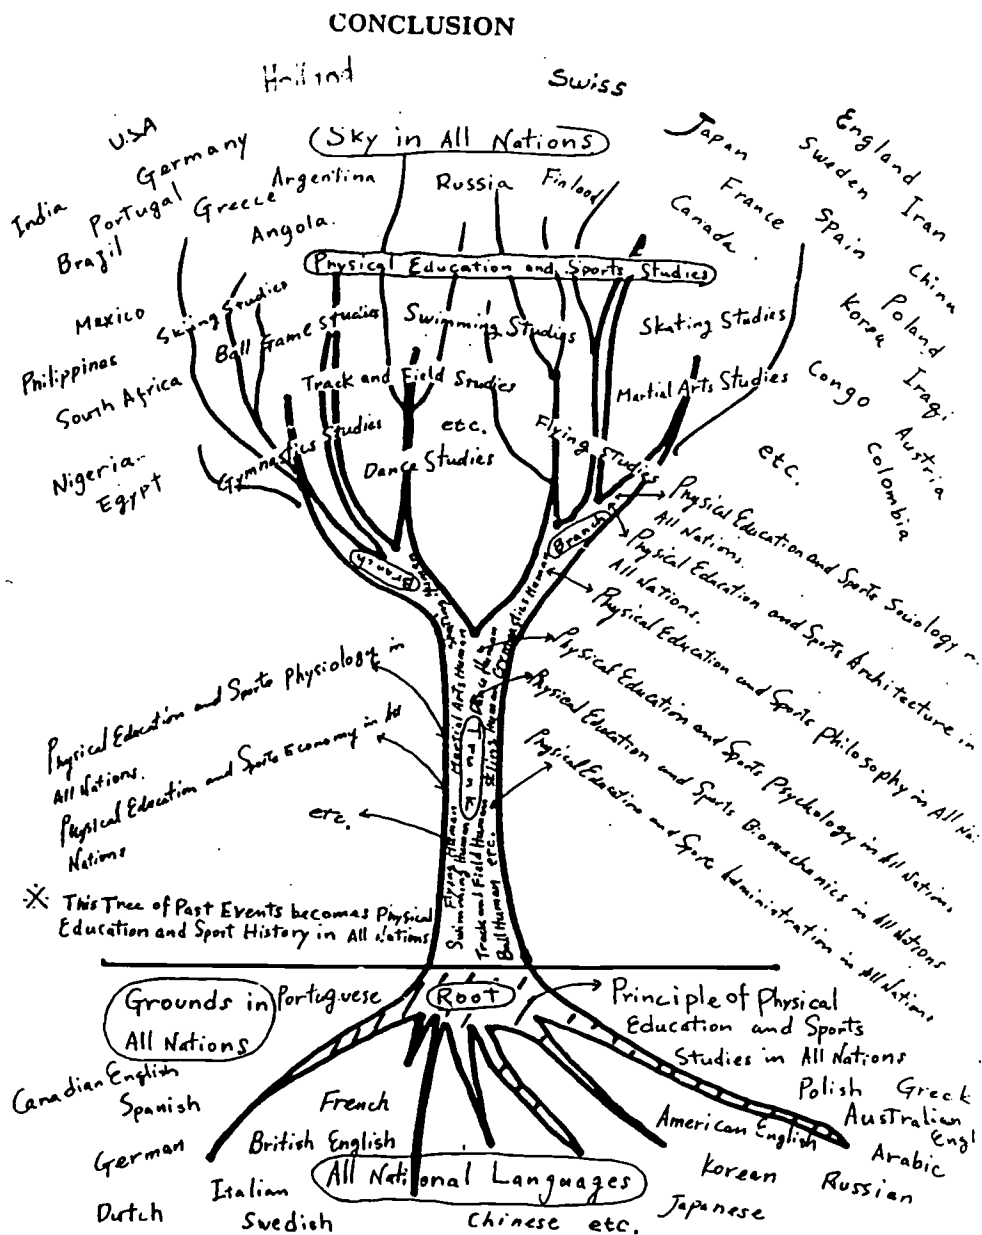 CONCLUSION
Holland
Swiss
U.S.A
Germany
Sky in All Nations
Japan
England
Sweden
India
Portugal
Greece
Argentina
Russia
Finland
France
Iran
Brazil
Angola.
Canada
Spain
China
Physical Education and Sports Studies
Mexico
Skiing Studies
Ball Game Studies
Swimming Studies
Skating Studies
Korea
Poland
Philippines
Track and Field Studies
Martial Arts Studies
Congo
Iraqi
South Africa
Gymnastics Studies
etc.
Flying Studies
etc.
Austria
Colombia
Nigeria..
Egypt
Dance Studies
Branch
Branch
Physical Education and Sports Sociology
All Nations.
Physical Education and Sports Architecture in
All Nations.
Physical Education and Sports Philosophy in All Na
Physical Education and Sports Psychology in All Nations
Physical Education and Sports Biomechanics in All Nations
Physical Education and Sports Administration in All Nations
Physical Education and Sports Physiology in
All Nations.
Physical Education and Sports Economy in All
Nations
etc.
Gymnastics Human
Martial Arts Human
Dance Human
Skiing Human
Trunk
Flying Human
Swimming Human
Track and Field Human
Ball Human etc.
※ This Tree of Past Events becomes Physical
Education and Sport History in All Nations
Grounds in
All Nations
Portuguese
Root
Principle of Physical
Education and Sports
Studies in All Nations
Canadian English
Spanish
French
Polish
Greek
American English
Australian
Engl
German
British English
Arabic
All National Languages
Korean
Russian
Dutch
Italian
Swedish
Chinese etc.
Japanese